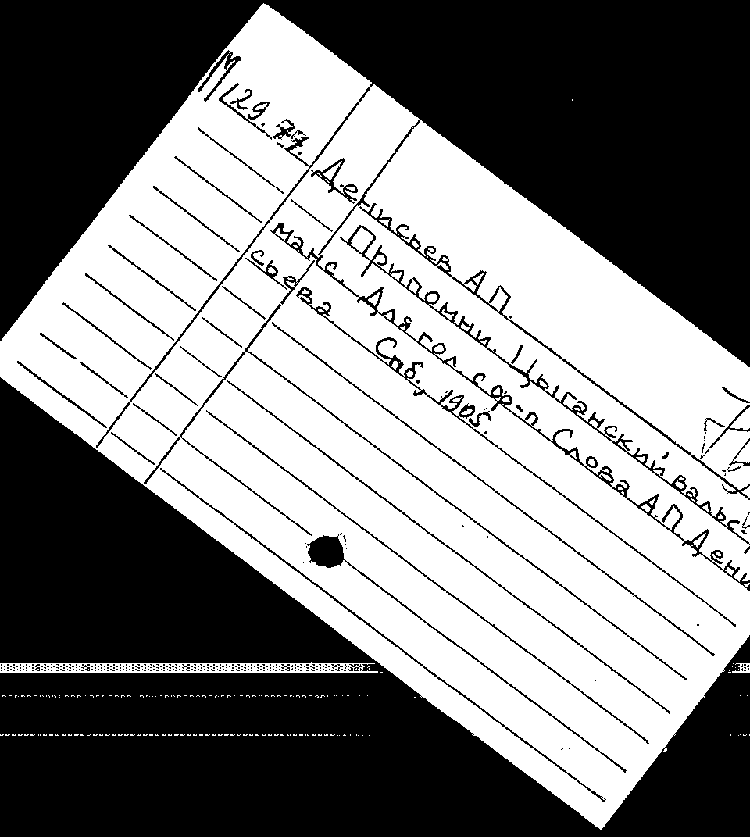 М 129.77.
Денисьев А.П.
Припомни. Цыганский вальс-
манс. Для гол. с ф-п. Слова А.П. Дени
сьева.
Спб., 1905.